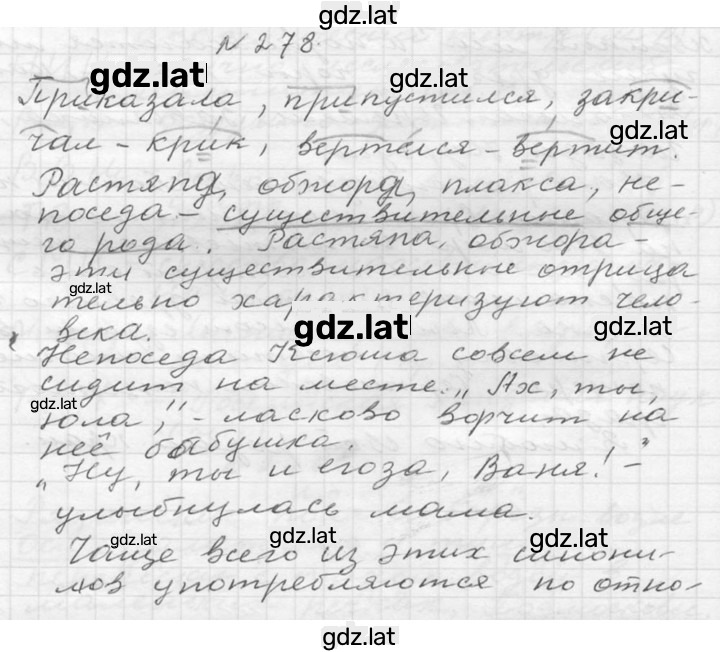 gdz.lat
N 278.
gdz.lat gdz.lat
Приказала, припустился, закри-
gdz.lat
чал - крик, вертелся - вертит.
Растяпа, обжора, плакса, не-
поседа - существительные обще-
го рода. Растяпа, обжора -
эти существительные отрица
gdz.lat
тельно характеризуют чело-
века.
gdz.lat gdz.lat
Непоседа Ксюша совсем не
сидит на месте. „Ах, ты,
gdz.lat
юла," - ласково ворчит на
неё бабушка.
„Ну, ты и егоза, Ваня!" -
улыбнулась мама.
gdz.lat gdz.lat gdz.lat
Чаще всего из этих синони-
мов употребляются по отно-
gdz.lat